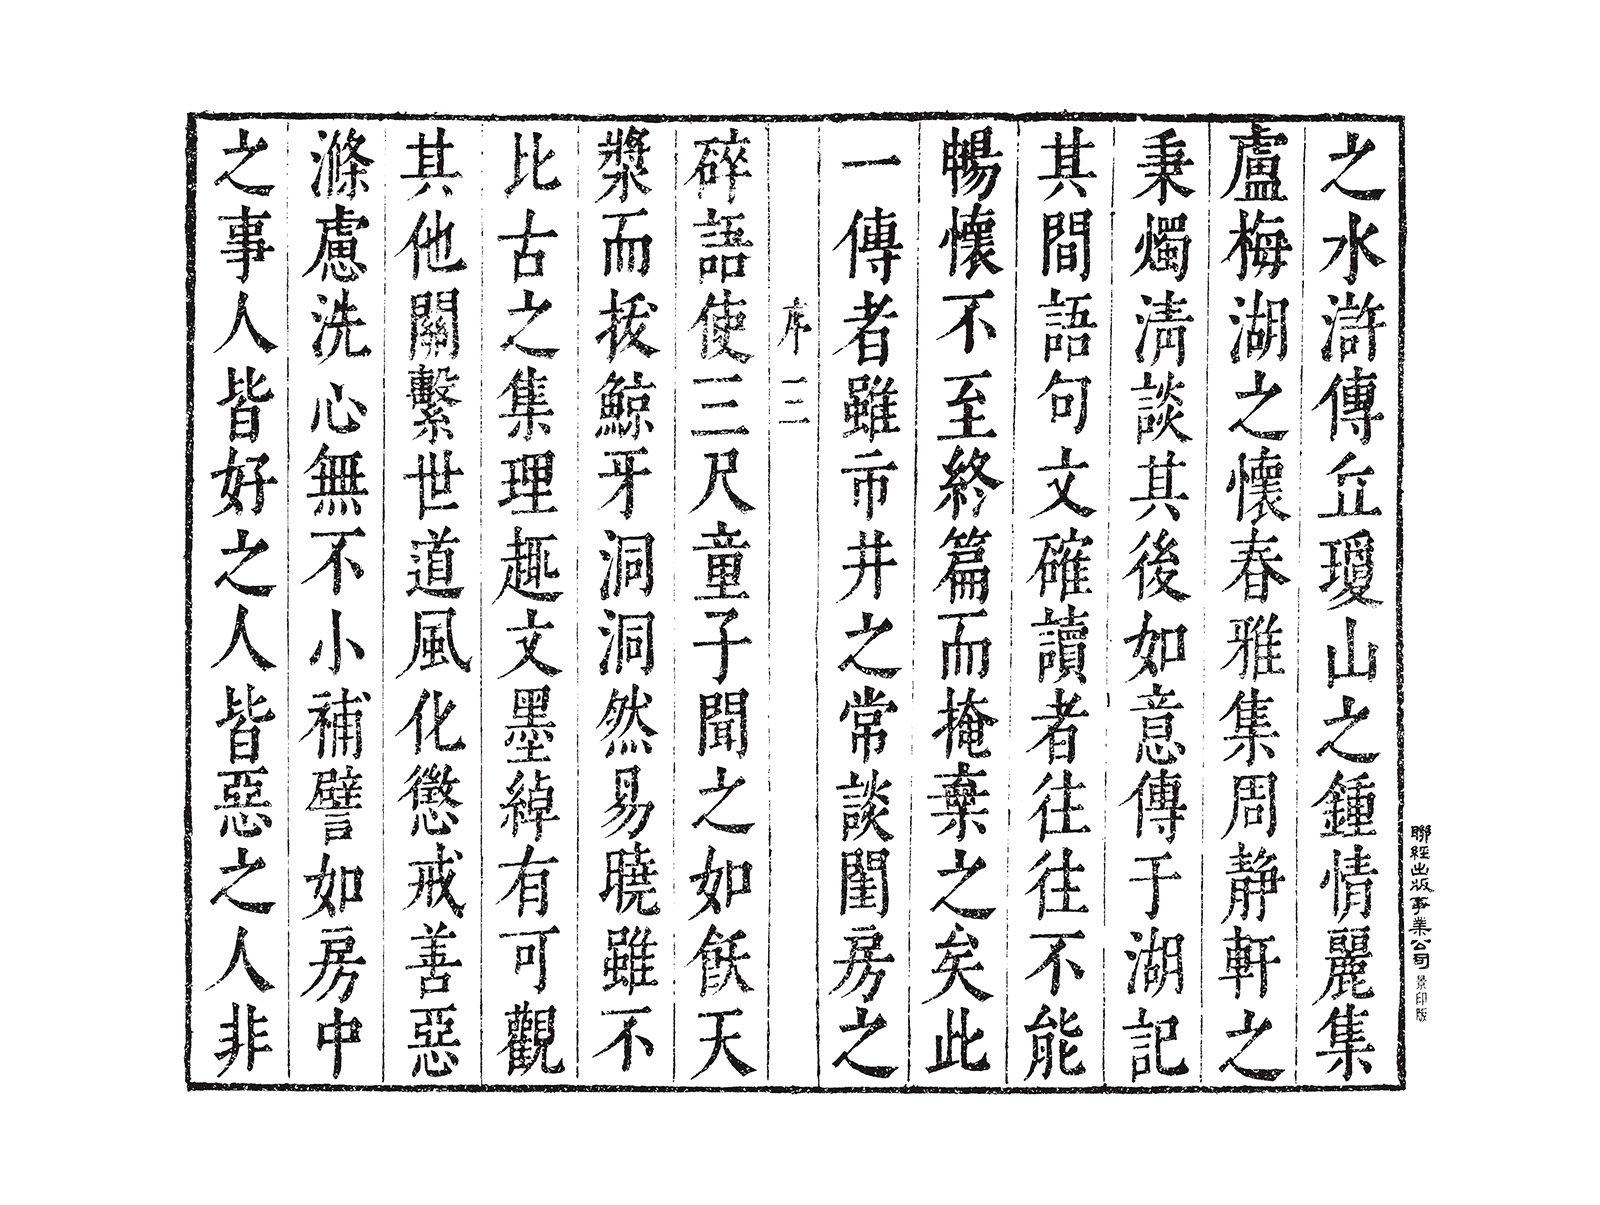 之水滸傳丘瓊山之鍾情麗集
盧梅湖之懷春雅集周靜軒之
秉燭淸談其後如意傳于湖記
其間語句文確讀者往往不能
暢懷不至終篇而掩棄之矣此
一傳者雖市井之常談閨房之
序 二
碎語使三尺童子聞之如飫天
漿而拔鯨牙洞洞然易曉雖不
比古之集理趣文墨綽有可觀
其他關繫世道風化懲戒善惡
滌慮洗心無不小補譬如房中
之事人皆好之人皆惡之人非
聯經出版事業公司景印版